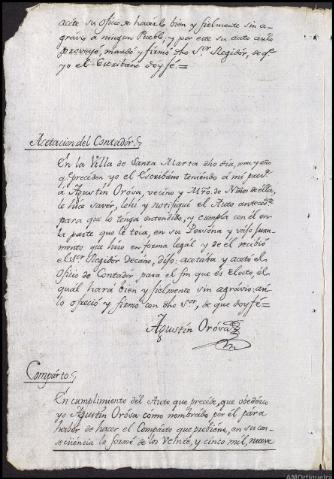 acite su oficio de hacerlo bien y fielmente sin a-
gravio a ningun Pueblo, y por este su auto asi lo
proveyó, mandó y firmó dho Sor Regidor, de q.e
yo el Escribano doy fé=
Acetacion del Contador
En la Villa de Santa Marta dho dia, mes y año
q.e preceden yo el Escribano teniendo a mi pres.a
á Agustin Oróva, vecino y Mro. de Niños de ella,
le hice saver, lehí y notifiqué el Auto anteced.te
para que lo tenga entendido, y cumpla con el en
la parte que le toca, en su Persona y vajo Jura-
mento que hizo en forma legal y de el recibió
el Sor Regidor Decano, dijo: acetava y acetó el
Oficio de Contador, para el fin que es Electo, el
qual hará bien y fielmente sin agravio: asi
lo ofreció y firmó con dho Sor, de que doy fé=
Agustin Oróva
Comparto
En cumplimiento del Auto que precede, que obedezco
yo Agustin Oróva como nombrado por él para
haber de hacer el Comparto que previene, en su con-
secuencia lo formé de los veinte, y cinco mil, nueve
AMOrtigueira